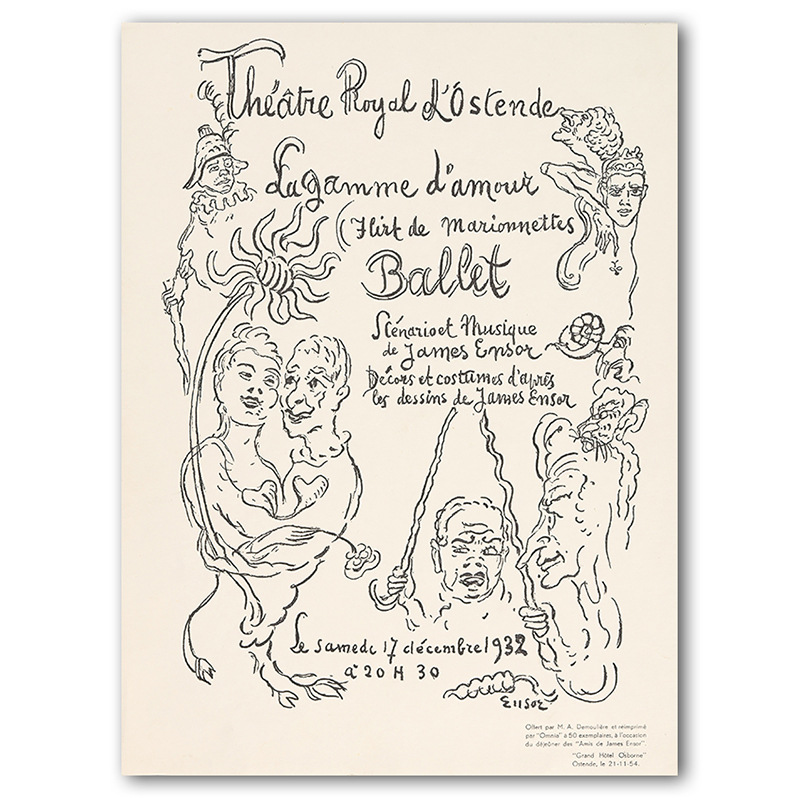 Théâtre Royal d'Ostende
La gamme d'amour
(Flirt de Marionnettes)
Ballet
Scénario et Musique
de James Ensor
Décors et costumes d'après
les dessins de James Ensor
Le samedi 17 décembre 1932
à 20 H 30
Ensor
Offert par M. A. Demoulière et réimprimé
par "Omnia" à 50 exemplaires, à l'occation
du déjeûner des "Amis de James Ensor".
"Grand Hôtel Osborne"
Ostende, le 21-11-54.